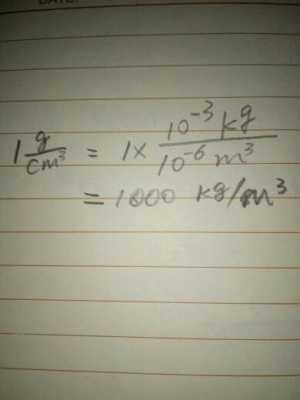 1 g/cm³ = 1 × 10⁻³ kg / 10⁻⁶ m³
= 1000 kg/m³